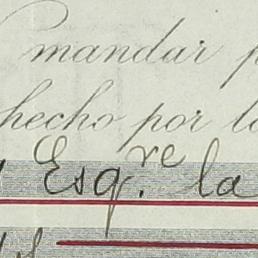 mandar p
hecho por lo
Esq.re la